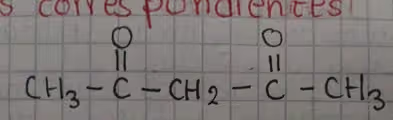 s correspondientes
O O
|| ||
CH3 - C - CH2 - C - CH3